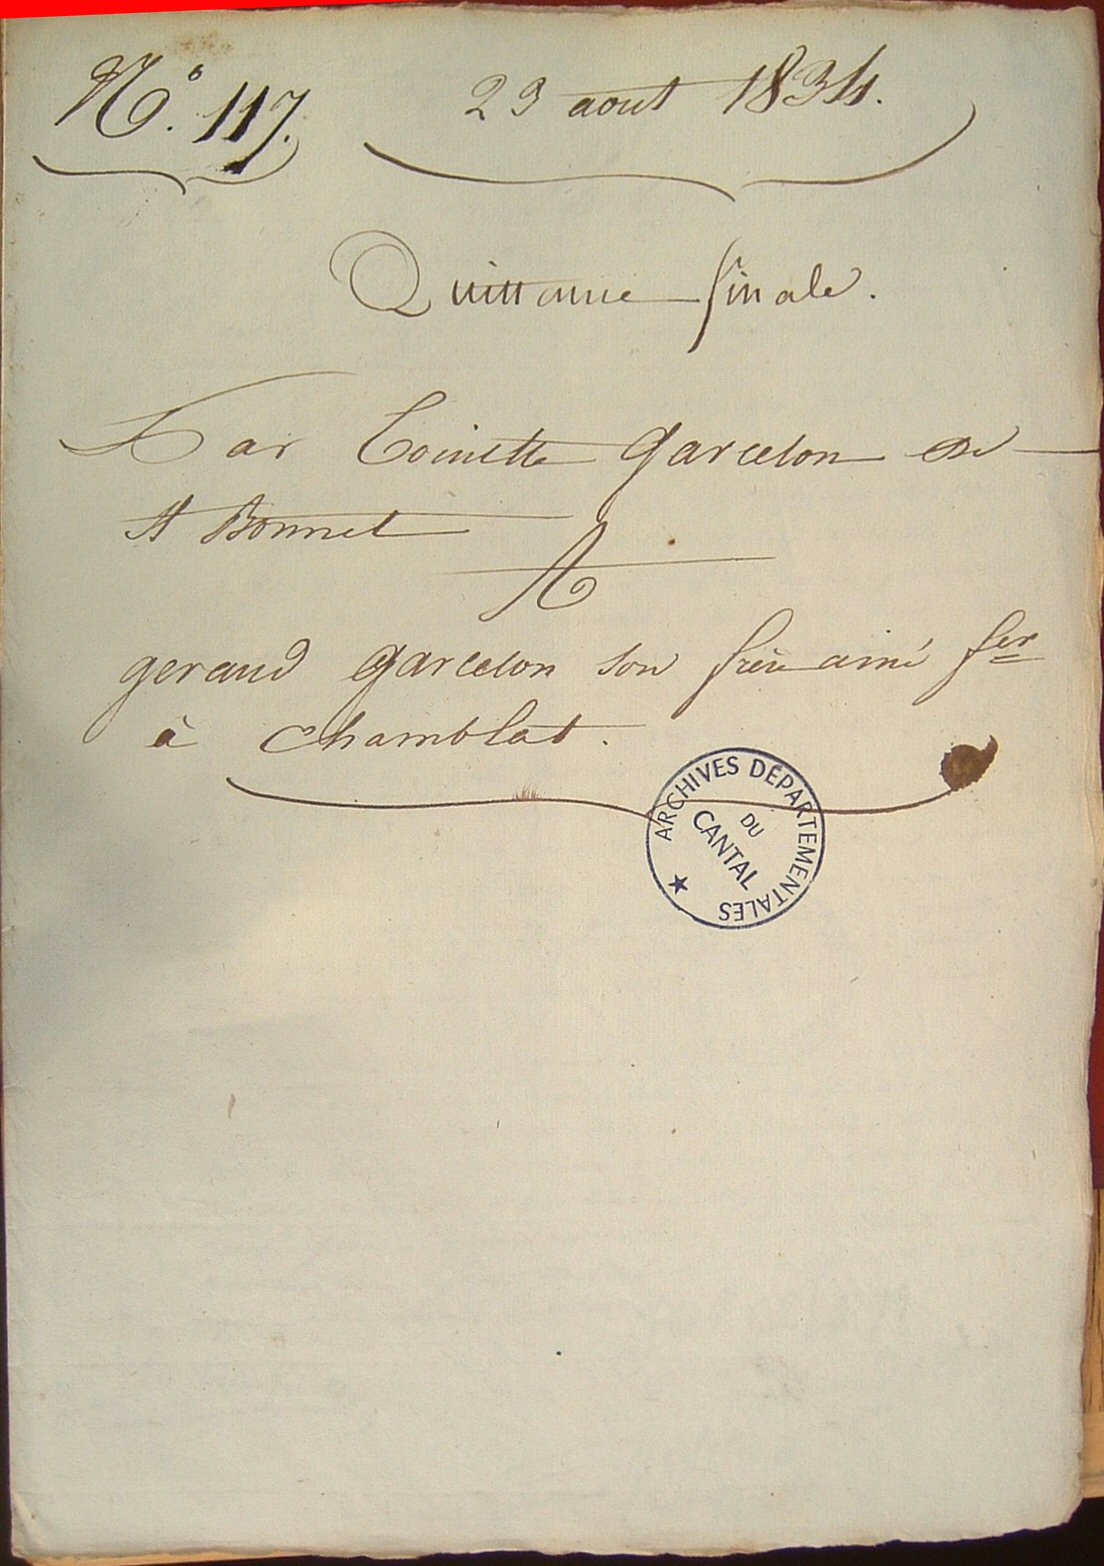 N.° 117. 23 aout 1834.
Quittance finale.
Par Toinette garcelon de
St Bonnet
A
geraud garcelon son frère ainé fer
à Chamblat.
ARCHIVES DÉPARTEMENTALES
DU
CANTAL